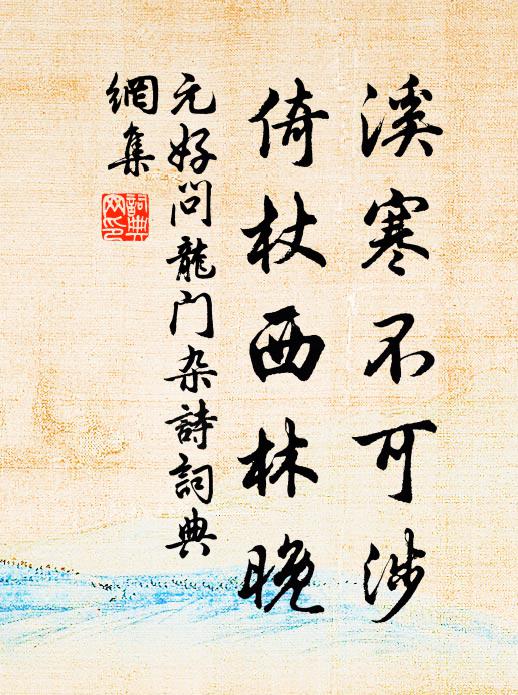 溪寒不可涉
倚杖西林晚
元好问龍门杂詩詞典
網集
詞典网印